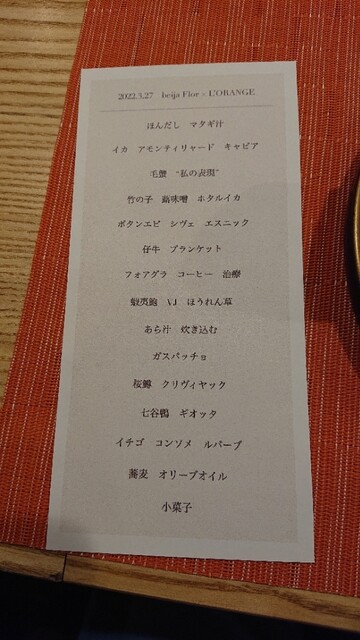 2022.3.27 beija Flor × L'ORANGE
ほんだし マタギ汁
イカ アモンティリャード キャビア
毛蟹 “私の表現”
竹の子 蕗味噌 ホタルイカ
ボタンエビ シヴェ エスニック
仔牛 ブランケット
フォアグラ コーヒー 治療
蝦夷鮑 VJ ほうれん草
あら汁 炊き込む
ガスパッチョ
桜鱒 クリヴィヤック
七谷鴨 ギオッタ
イチゴ コンソメ ルバーブ
蕎麦 オリーブオイル
小菓子